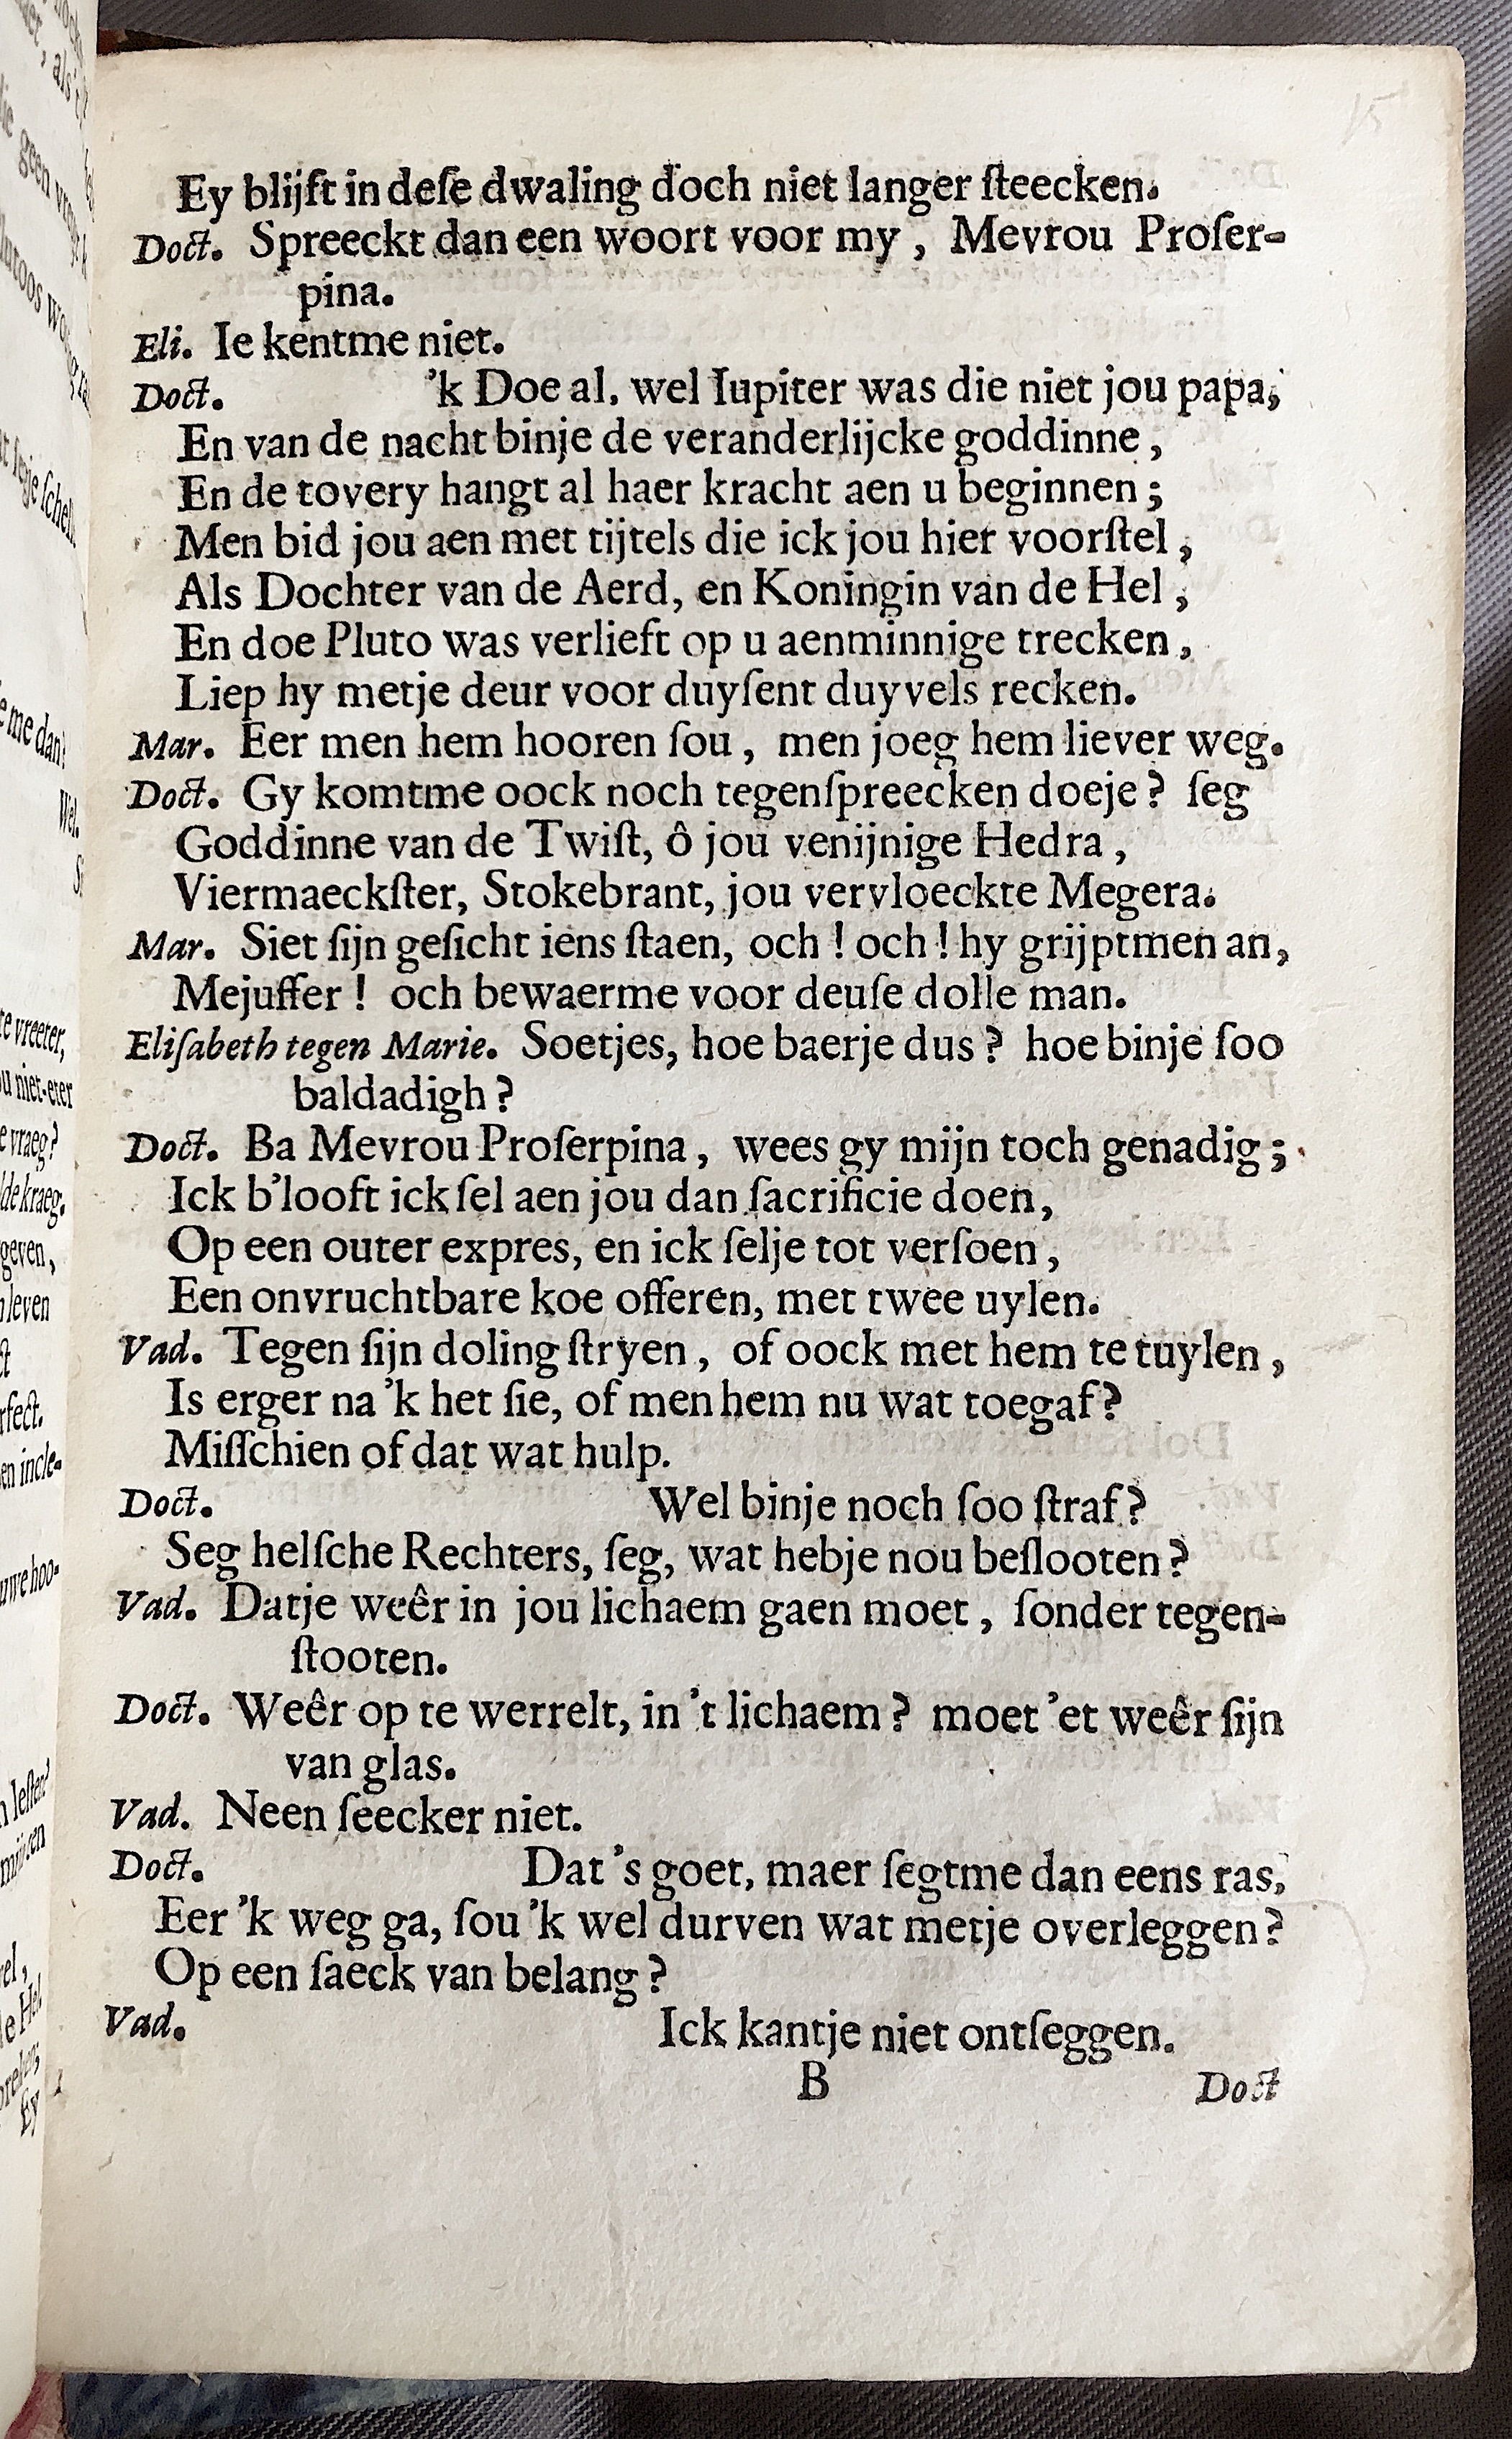 15
Ey blijft in deſe dwaling doch niet langer ſteecken.
Doct. Spreeckt dan een woort voor my, Mevrou Proſer-
pina.
Eli. Ie kentme niet.
Doct. 'k Doe al. wel Iupiter was die niet jou papa;
En van de nacht binje de veranderlijcke goddinne,
En de tovery hangt al haer kracht aen u beginnen;
Men bid jou aen met tijtels die ick jou hier voorſtel,
Als Dochter van de Aerd, en Koningin van de Hel,
En doe Pluto was verlieft op u aenminnige trecken,
Liep hy metje deur voor duyſent duyvels recken.
Mar. Eer men hem hooren ſou, men joeg hem liever weg.
Doct. Gy komtme oock noch tegenſpreecken doeje? ſeg
Goddinne van de Twiſt, ô jou venijnige Hedra,
Viermaeckſter, Stokebrant, jou vervloeckte Megera.
Mar. Siet ſijn geſicht iens ſtaen, och! och! hy grijptmen an,
Mejuffer! och bewaerme voor deuſe dolle man.
Eliſabeth tegen Marie. Soetjes, hoe baerje dus? hoe binje ſoo
baldadigh?
Doct. Ba Mevrou Proſerpina, wees gy mijn toch genadig;
Ick b'looft ick ſel aen jou dan ſacrificie doen,
Op een outer expres, en ick ſelje tot verſoen,
Een onvruchtbare koe offeren, met twee uylen.
Vad. Tegen ſijn doling ſtryen, of oock met hem te tuylen,
Is erger na 'k het ſie, of men hem nu wat toegaf?
Miſſchien of dat wat hulp.
Doct. Wel binje noch ſoo ſtraf?
Seg helſche Rechters, ſeg, wat hebje nou beſlooten?
Vad. Datje weêr in jou lichaem gaen moet, ſonder tegen-
ſtooten.
Doct. Weêr op te werrelt, in 't lichaem? moet 'et weêr ſijn
van glas.
Vad. Neen ſeecker niet.
Doct. Dat 's goet, maer ſegtme dan eens ras,
Eer 'k weg ga, ſou 'k wel durven wat metje overleggen?
Op een ſaeck van belang?
Vad. Ick kantje niet ontſeggen.
B Doct